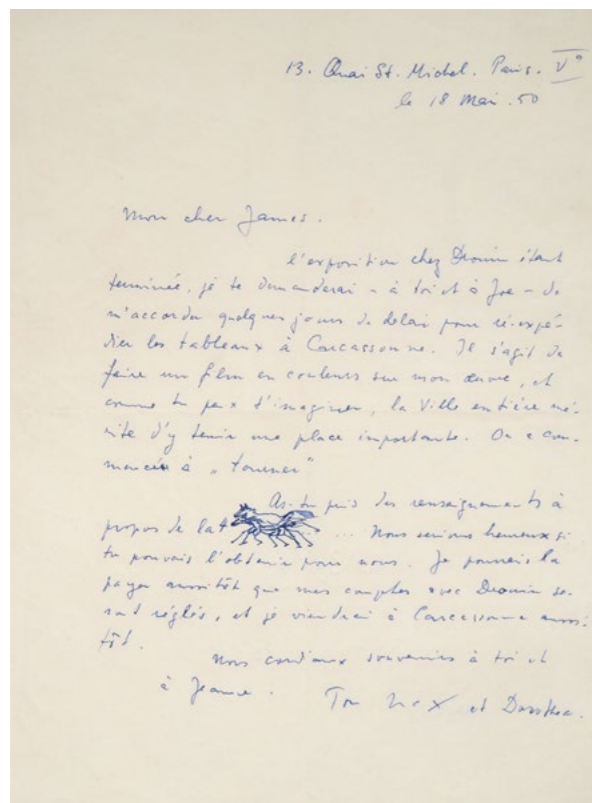 13. Quai St. Michel. Paris. V°
le 18 Mai. 50
Mon cher James.
l'exposition chez Drouin étant
terminée, je te demanderai – à toi et à Joe – de
m'accorder quelques jours de délai pour ré-expé-
dier les tableaux à Carcassonne. Il s'agit de
faire un film en couleurs sur mon œuvre, et
comme tu peux t'imaginer, la Ville entière mé-
rite d'y tenir une place importante. On a com-
mencé à „tourner"
As-tu pris des renseignements à
propos de la ... Nous serions heureux si
tu pouvais l'obtenir pour nous. Je pourrais la
payer aussitôt que mes comptes avec Drouin se-
ront réglés, et je viendrai à Carcassonne aussi-
tôt.
Nos cordiaux souvenirs à toi et
à Jeanne. Ton Max et Dorothea.